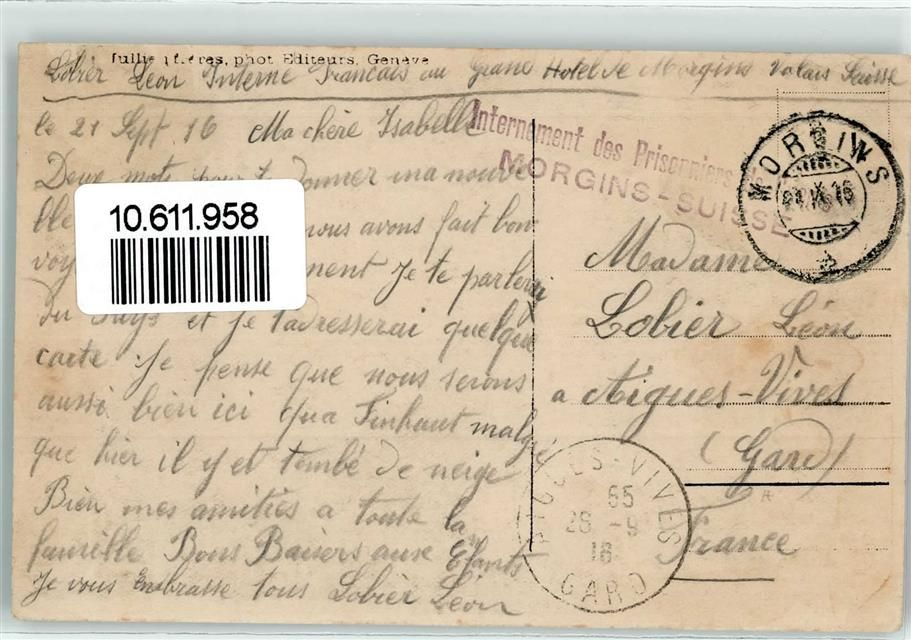 Jullien frères, phot Editeurs, Genève
Lobier Léon Interné Francais au Grand Hotel de Morgins Valais Suisse
le 21 Sept 16 Ma chère Isabelle
Deux mots pour te donner ma nouve
lle nous avons fait bon
voy ment Je te parlerai
du Pays et Je t'adresserai quelque
carte Je pense que nous serons
aussi bien ici qua Finhaut malgré
que hier il y et tombé de neige
Bien mes amitiés a toute la
famille Bons Baisers aux Efants
Je vous embrasse tous Lobier Léon
10.611.958
Internement des Prisonniers
MORGINS-SUISSE
MORGINS
21.IX.16
Madame
Lobier Léon
a Aigues-Vives
(Gard)
France
AIGUES-VIVES
26 -9
16
GARD